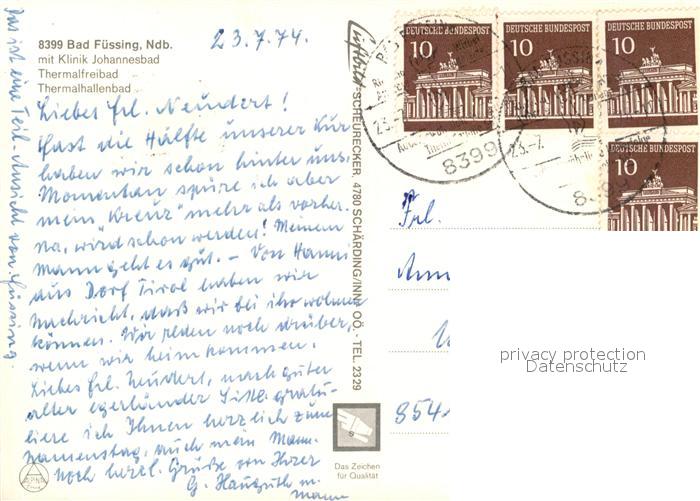 8399 Bad Füssing, Ndb.
mit Klinik Johannesbad
Thermalfreibad
Thermalhallenbad
23.7.74.
Das ist eine Teil-Ansicht von Füssing.
Liebes Frl. Neundert!
Fast die Hälfte unserer Kur
haben wir schon hinter uns.
Momentan spüre ich aber
mein "Kreuz" mehr als vorher.
Na, wird schon werden! Meinem
Mann geht es gut. - Von Hanni
aus Dorf Tirol haben wir
Nachricht, daß wir bei ihr wohnen
können. Wir reden noch drüber,
wenn wir heimkommen.
Liebes Frl. Neundert, nach guter
alter Egerländer Sitte gratu-
liere ich Ihnen herzlich zum
Namenstag, auch mein Mann.
Noch herzl. Grüße von Ihrer
G. u. Mann
Luftbild SCHEURECKER, 4780 SCHÄRDING/INN, OÖ. - TEL. 2329
DEUTSCHE BUNDESPOST
10
DEUTSCHE BUNDESPOST
10
DEUTSCHE BUNDESPOST
10
10
8399
23.-7.
8399
Frl.
854
privacy protection
Datenschutz
Das Zeichen
für Qualität
ALPINA